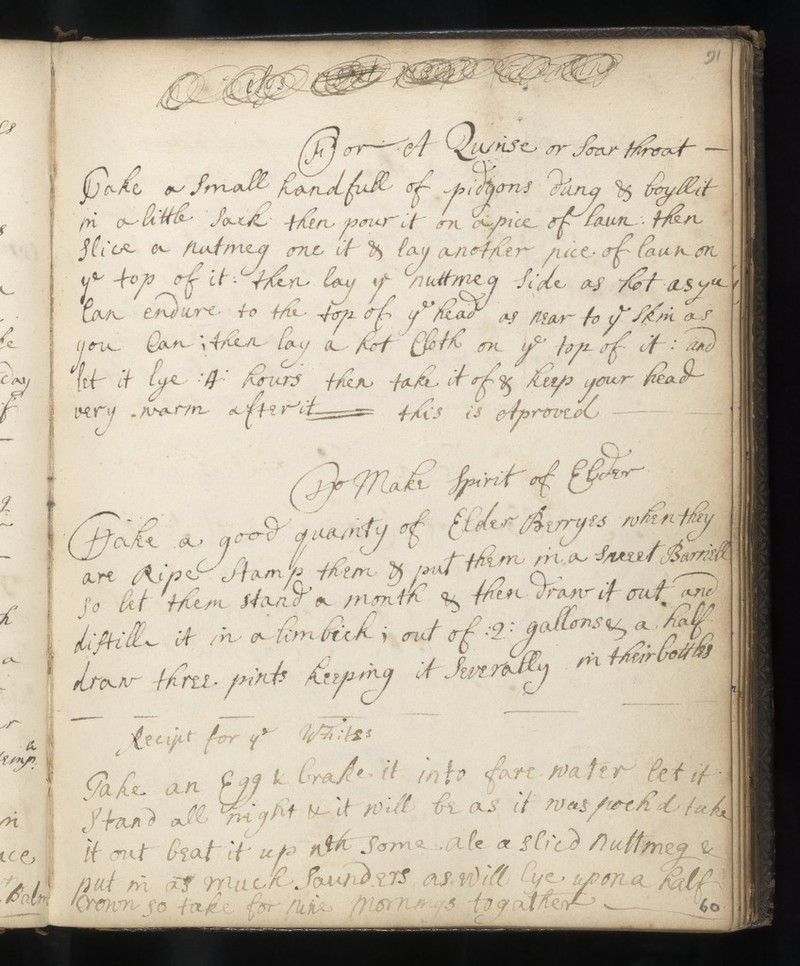 91
For A Quinse or Soar throat
Take a Small handfull of pidgons dung & boyllit
in a little Sack then pour it on a pice of laun : then
Slice a nutmeg one it & lay another pice of laun on
ye top of it : then lay ye nuttmeg Side as hot as yu
Can endure to the top of yr head as near to ye Skin as
you Can ; then lay a hot Cloth on ye top of it : and
let it lye :4: hours then take it of & keep your head
very warm after it this is Aproved
To Make Spirit of Elder
Take a good quantity of Elder Berryes when they
are Ripe Stamp them & put them in a Sweet Barriell
So let them stand a month & then draw it out and
distille it in a limbick ; out of :2: gallons & a half
draw three pints keeping it Severally in their bottles
Receipt for ye Whites
Take an Egg & brake it into fare water let it
Stand all night & it will be as it was poch'd take
it out beat it up wth Some ale a slic'd Nuttmeg &
put in as much Saunders as will lye upon a half
Crown so take for nine Mornings togather
60